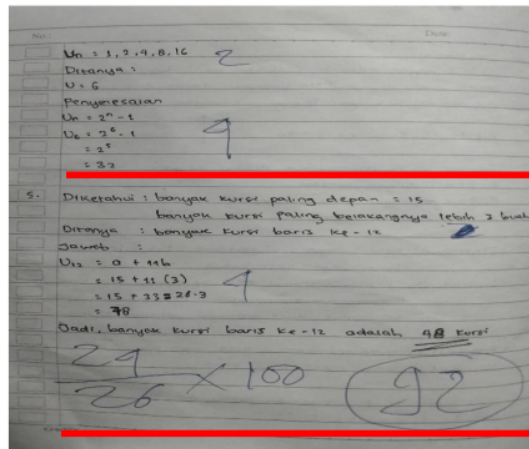 No.: Date:
Un = 1, 2, 4, 8, 16 2
Ditanya :
U = 6
Penyelesaian
Un = 2ⁿ - 1
U6 = 2⁶ - 1 4
= 2⁵
= 32
5. Diketahui : banyak kursi paling depan = 15
banyak kursi paling belakangnya lebih 3 buah
Ditanya : banyak kursi baris ke-12
Jawab :
U12 = a + 11b
= 15 + 11 (3) 4
= 15 + 33 =
= 48
Jadi, banyak kursi baris ke-12 adalah 48 kursi
24/26 × 100 92